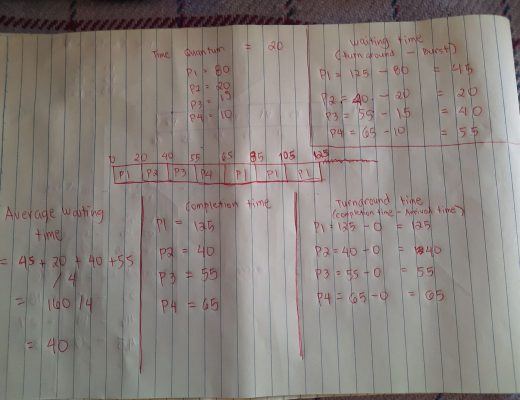 Time Quantum = 20
P1 = 80
P2 = 20
P3 = 15
P4 = 10
Waiting time
(turn around - Burst)
P1 = 125 - 80 = 45
P2 = 40 - 20 = 20
P3 = 55 - 15 = 40
P4 = 65 - 10 = 55
0 20 40 55 65 85 105 125
P1 P2 P3 P4 P1 P1 P1
Average waiting
time
= 45 + 20 + 40 + 55
/4
= 160 /4
= 40
Completion time
P1 = 125
P2 = 40
P3 = 55
P4 = 65
Turnaround time
(completion time - Arrival time)
P1 = 125 - 0 = 125
P2 = 40 - 0 = 40
P3 = 55 - 0 = 55
P4 = 65 - 0 = 65